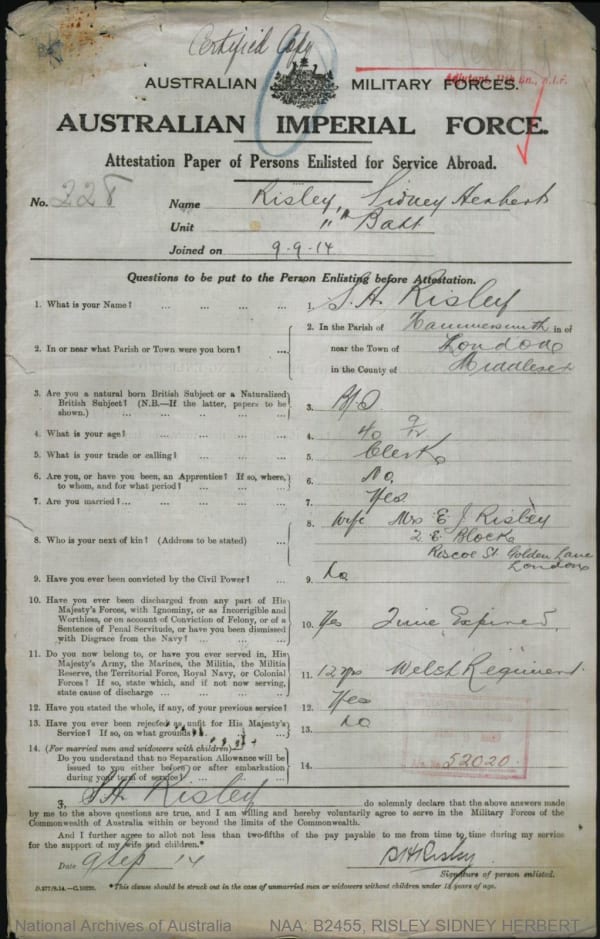 Certified Copy
AUSTRALIAN MILITARY FORCES.
Adjutant, 11th Bn., A.I.F.
AUSTRALIAN IMPERIAL FORCE.
Attestation Paper of Persons Enlisted for Service Abroad.
No. 228 Name Risley, Sidney Herbert
Unit 11th Batt
Joined on 9-9-14
Questions to be put to the Person Enlisting before Attestation.
1. What is your Name? ... ... ... ... 1. S. H. Risley
2. In or near what Parish or Town were you born? ... 2. In the Parish of Hammersmith in or
near the Town of London
in the County of Middlesex
3. Are you a natural born British Subject or a Naturalized
British Subject? (N.B.—If the latter, papers to be
shown.) ... ... ... ... ... 3.
4. What is your age? ... ... ... ... 4. 40
5. What is your trade or calling? ... ... ... 5. Clerk
6. Are you, or have you been, an Apprentice? If so, where,
to whom, and for what period? ... ... ... 6. No
7. Are you married? ... ... ... ... ... 7. Yes
8. Who is your next of kin? (Address to be stated) ... 8. Wife Mrs E. J. Risley
2 E Block
Riscoe St Golden Lane
London
9. Have you ever been convicted by the Civil Power? ... 9. No
10. Have you ever been discharged from any part of His
Majesty's Forces, with Ignominy, or as Incorrigible and
Worthless, or on account of Conviction of Felony, or of a
Sentence of Penal Servitude, or have you been dismissed
with Disgrace from the Navy? ... ... ... 10. Yes Time Expired
11. Do you now belong to, or have you ever served in, His
Majesty's Army, the Marines, the Militia, the Militia
Reserve, the Territorial Force, Royal Navy, or Colonial
Forces? If so, state which, and if not now serving,
state cause of discharge ... ... ... ... 11. 12 Yrs Welsh Regiment
12. Have you stated the whole, if any, of your previous service? 12. Yes
13. Have you ever been rejected as unfit for His Majesty's
Service? If so, on what grounds? 13. No
14. (For married men and widowers with children)
Do you understand that no Separation Allowance will be
issued to you either before or after embarkation
during your term of service? 14.
52020
I, S H Risley do solemnly declare that the above answers made
by me to the above questions are true, and I am willing and hereby voluntarily agree to serve in the Military Forces of the
Commonwealth of Australia within or beyond the limits of the Commonwealth.
And I further agree to allot not less than two-fifths of the pay payable to me from time to time during my service
for the support of my wife and children.*
Date 9 Sep 14 S H Risley
Signature of person enlisted.
D.277/9.14.—C.10220. *This clause should be struck out in the case of unmarried men or widowers without children under 18 years of age.
National Archives of Australia NAA: B2455, RISLEY SIDNEY HERBERT